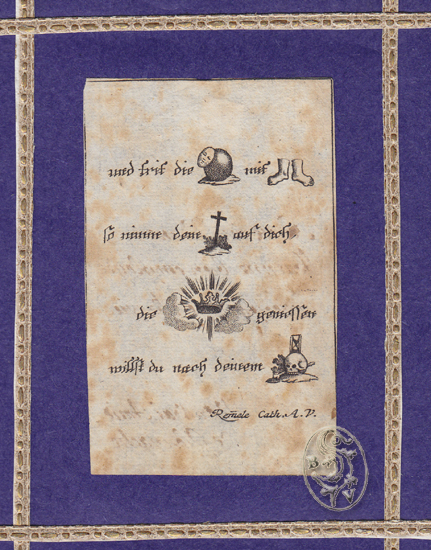 und trit die mit
so nimm dein auf dich
die geniessen
willst du nach deinem
Remele Cath. A. V.